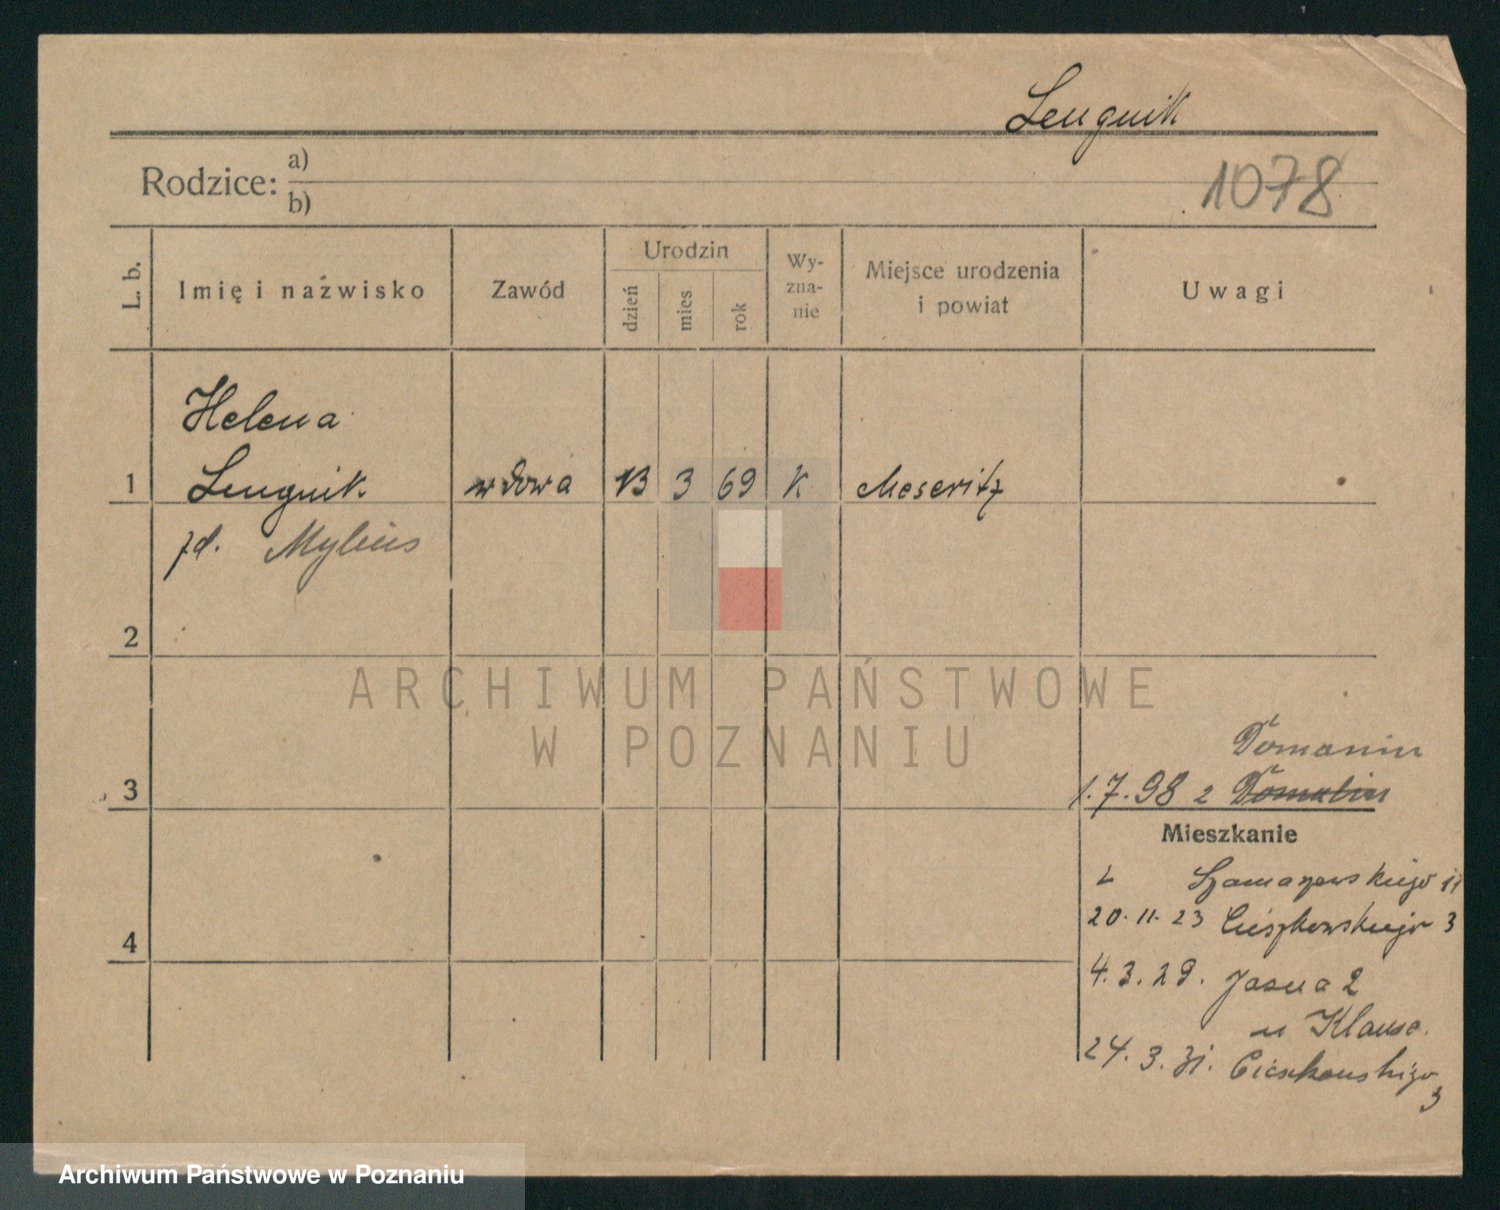 Lengnik
Rodzice: a)
b)
1078
L. b.
Imię i nazwisko
Zawód
Urodzin
dzień
mies
rok
Wy-
zna-
nie
Miejsce urodzenia
i powiat
Uwagi
Helena
1 Lengnik wdowa 13 3 69 K Meseritz
zd. Mylius
2
ARCHIWUM PAŃSTWOWE
W POZNANIU
Tomanin
3
1.7.98 z
Mieszkanie
Szamarzewskiego 11
20.11.23 Cieszkowskiego 3
4
4.3.29. Jasna 2
u Klause.
24.3.31. Cieszkowskiego
3
Archiwum Państwowe w Poznaniu